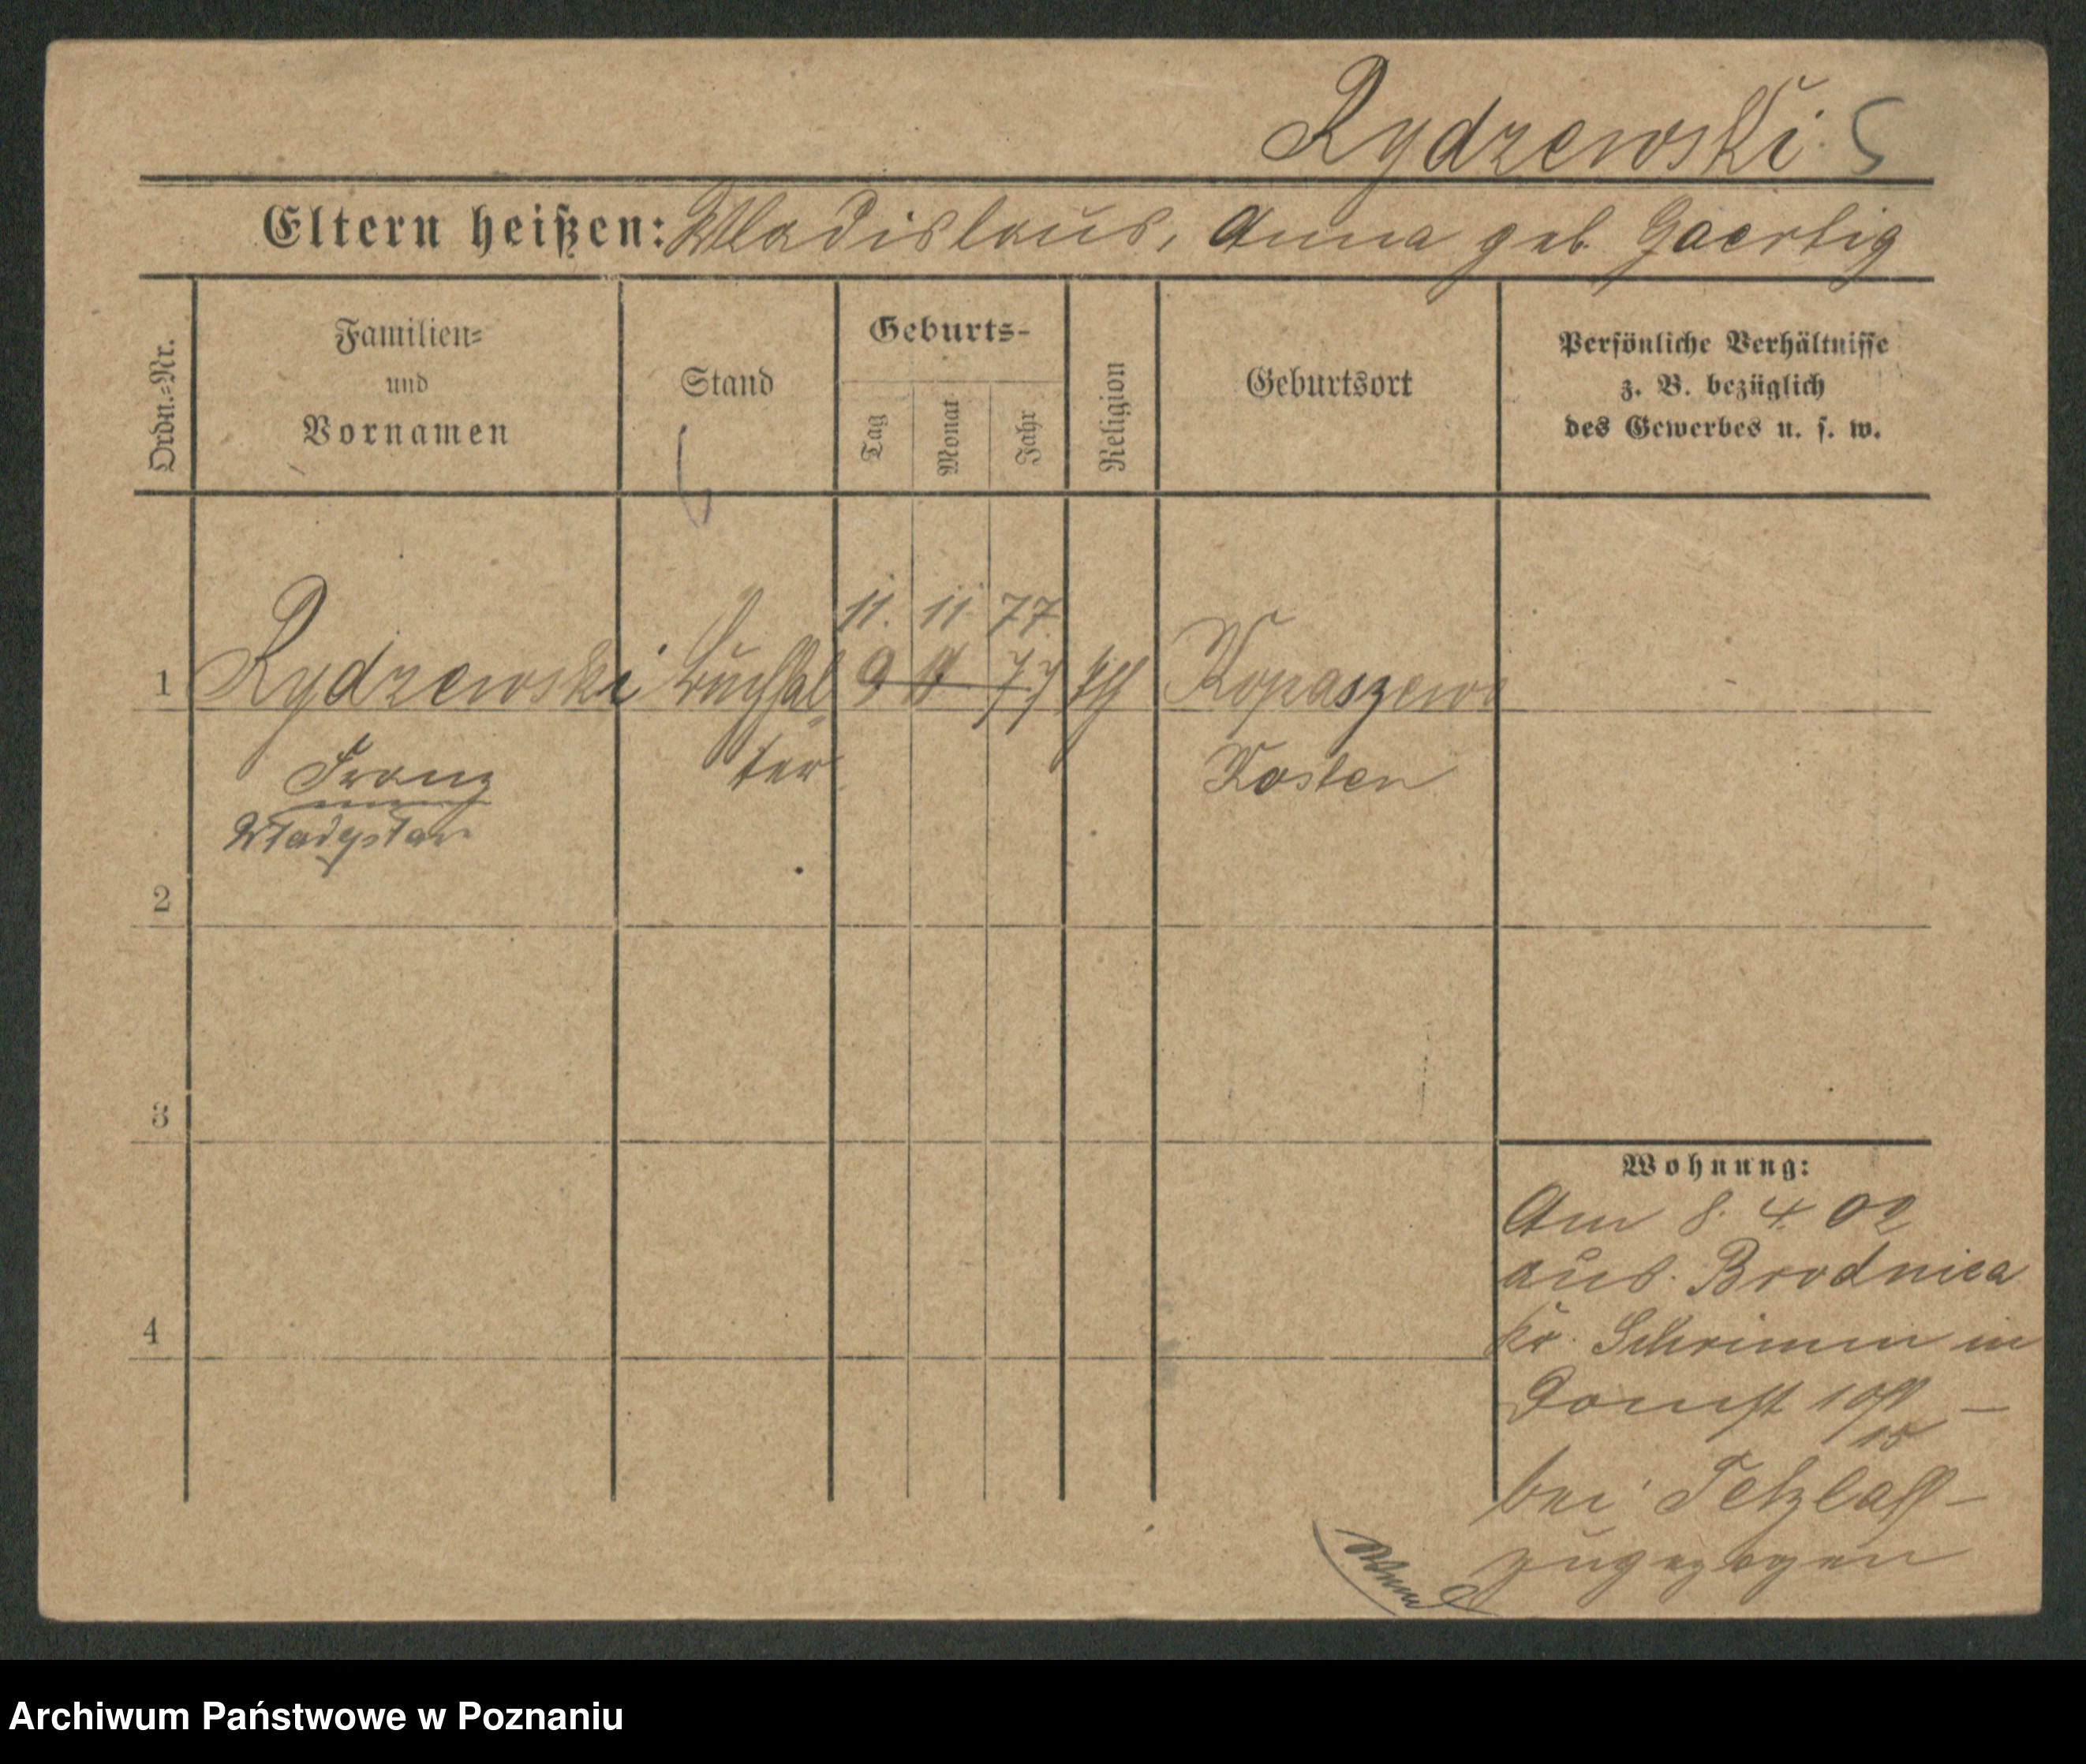 Rydzewski
Eltern heißen: Wladislaus, Anna geb Gaertig
Ordn.=Nr.
Familien=
und
Vornamen
Stand
Geburts-
Tag
Monat
Jahr
Religion
Geburtsort
Persönliche Verhältnisse
z. B. bezüglich
des Gewerbes u. s. w.
11. 11. 77.
1 Rydzewski Buchhal 9 11 77 kth Kopaszewo
Franz ter Kosten
Władysław
2
3
4
Wohnung:
Am 8. 4. 02
aus Brodnica
Kr. Schrimm in
bei Tetzlaff -
zugezogen
Archiwum Państwowe w Poznaniu